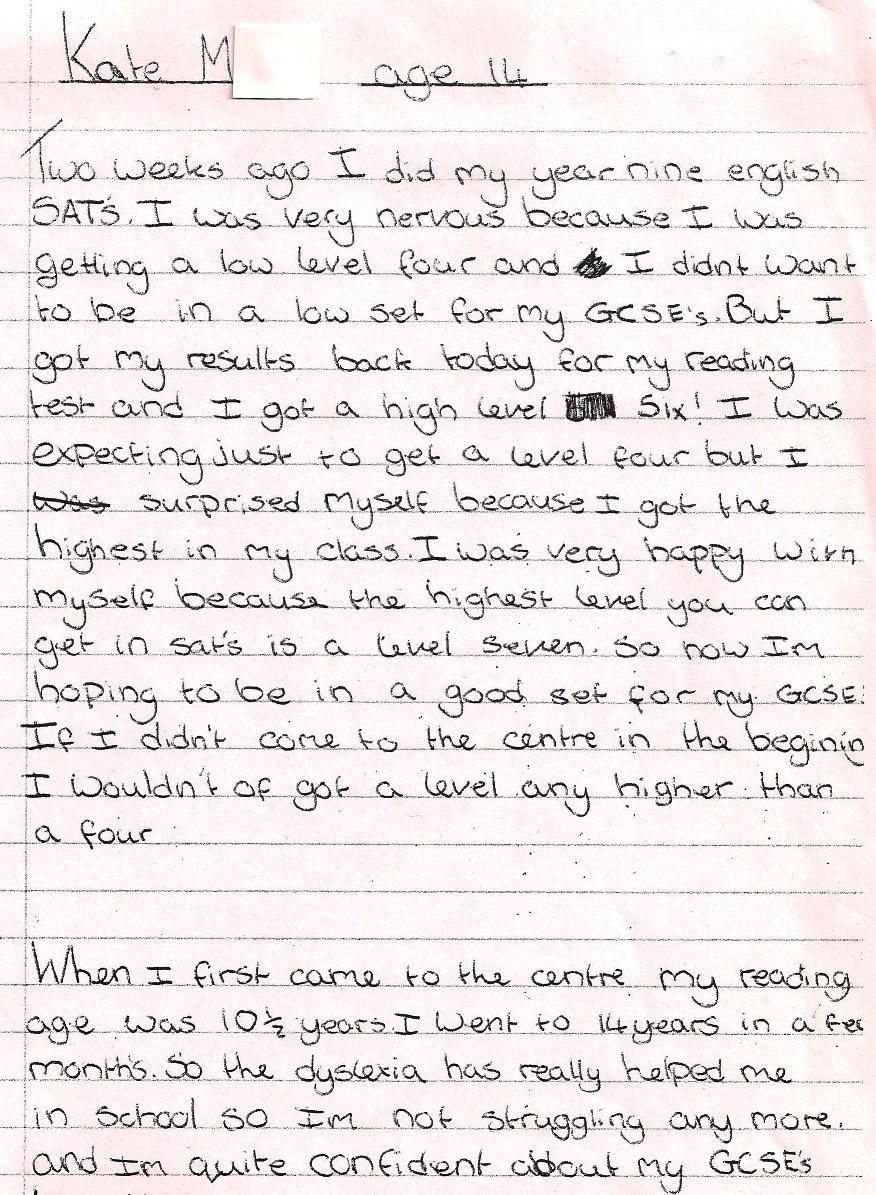 Kate M age 14
Two weeks ago I did my year nine english
SAT's. I was very nervous because I was
getting a low level four and I didnt want
to be in a low set for my GCSE's. But I
got my results back today for my reading
test and I got a high level Six! I was
expecting just to get a level four but I
was surprised myself because I got the
highest in my class. I was very happy with
myself because the highest level you can
get in sat's is a level seven. So now Im
hoping to be in a good set for my GCSE
If I didn't come to the centre in the beginin
I wouldn't of got a level any higher than
a four
When I first came to the centre my reading
age was 10½ years. I went to 14 years in a few
month's. So the dyslexia has really helped me
in school so Im not struggling any more.
and Im quite confident about my GCSE's